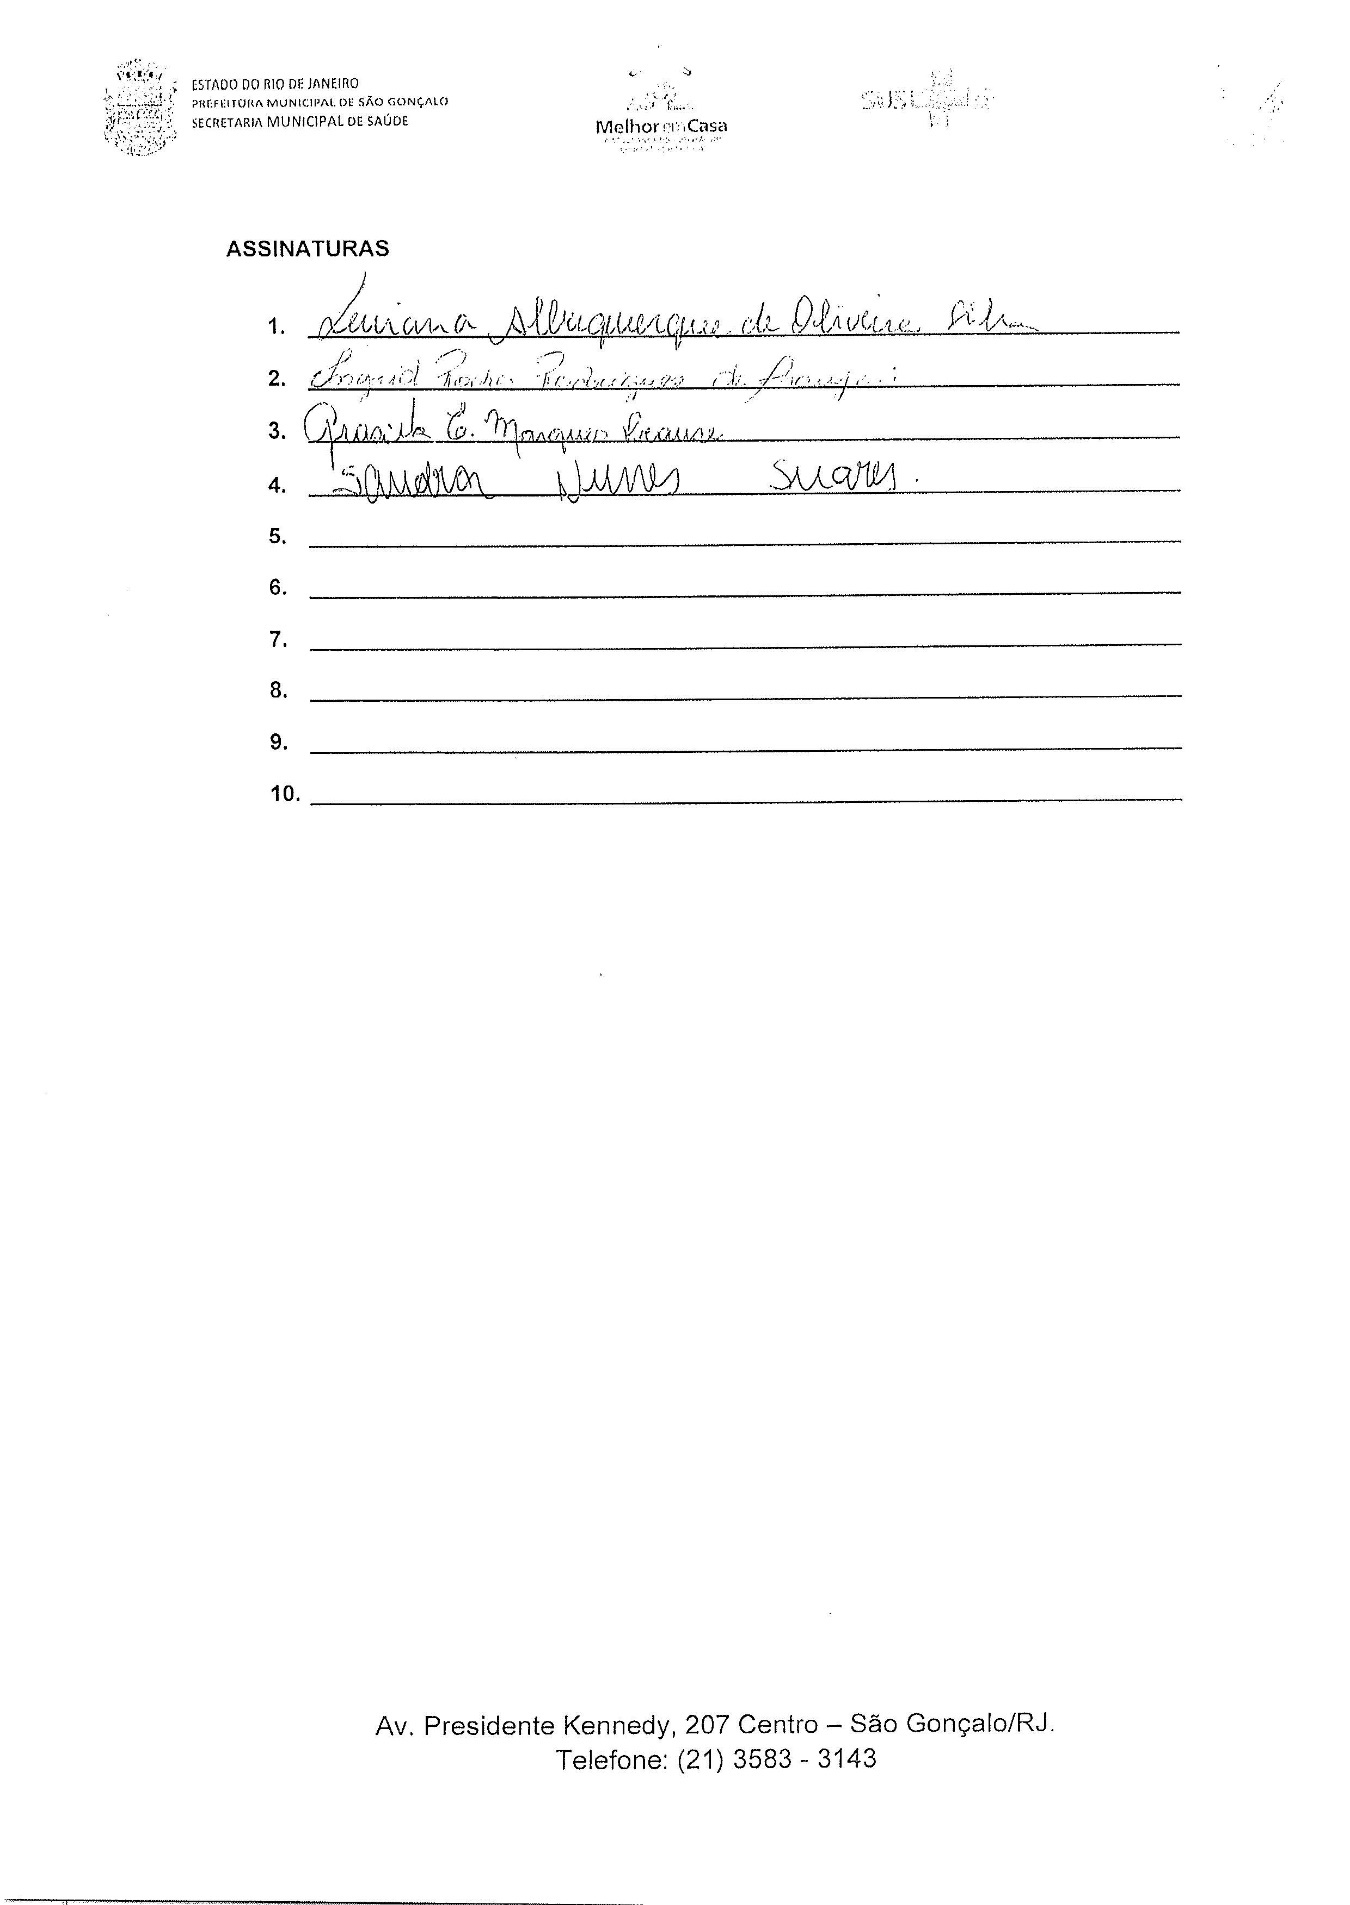 ESTADO DO RIO DE JANEIRO
PREFEITURA MUNICIPAL DE SÃO GONÇALO
SECRETARIA MUNICIPAL DE SAÚDE
Melhor em Casa
SUS
ASSINATURAS
1. Luciana Albuquerque de Oliveira Silva
2. Ingrid Rocha Rodrigues de Araujo
3. E. Marques
4. Sandra Nunes Suares.
5.
6.
7.
8.
9.
10.
Av. Presidente Kennedy, 207 Centro – São Gonçalo/RJ.
Telefone: (21) 3583 - 3143